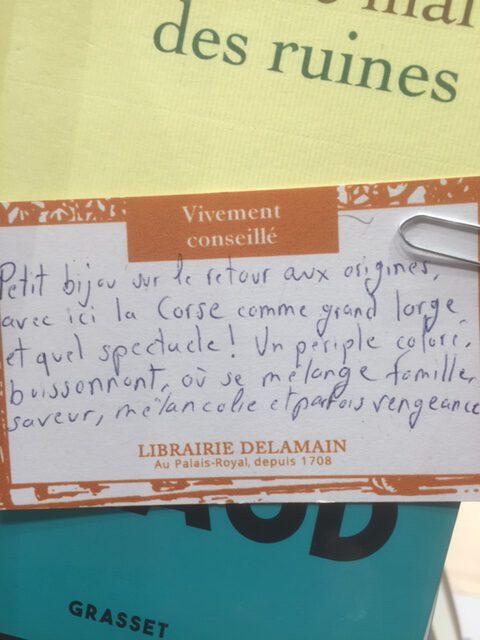 mal
des ruines
Vivement
conseillé
Petit bijou sur le retour aux origines,
avec ici la Corse comme grand large,
et quel spectacle! Un périple coloré,
buissonnant, où se mélange famille,
saveur, mélancolie et parfois vengeance
LIBRAIRIE DELAMAIN
Au Palais-Royal, depuis 1708
AUD
GRASSET